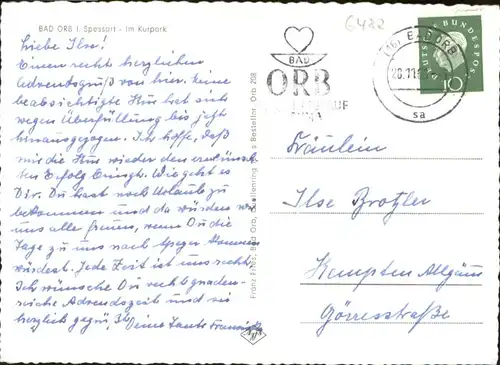 BAD ORB i. Spessart - Im Kurpark
Liebe Ilse!
Einen recht herzlichen
Adventsgruß von hier. Meine
beabsichtigte Kur hat sich
wegen Überfüllung bis jetzt
hinausgezogen. Ich hoffe, daß
mir die Kur wieder den erwünsch-
ten Erfolg bringt. Wie geht es
Dir. Du hast noch Urlaub zu
bekommen und da würden wir
uns alle freuen, wenn Du die
Tage zu uns nach kommen
würdest. Jede Zeit ist uns recht.
Ich wünsche Dir recht gnaden-
reiche Adventszeit und sei
herzlich gegrüßt Deine Tante
Bestellnr. Orb 258
Bad Orb
6482
BAD
ORB
(16) BAD ORB
sa
DEUTSCHE BUNDESPOST
10
Fräulein
Ilse Brotzler
Kempten Allgäu
Görresstraße